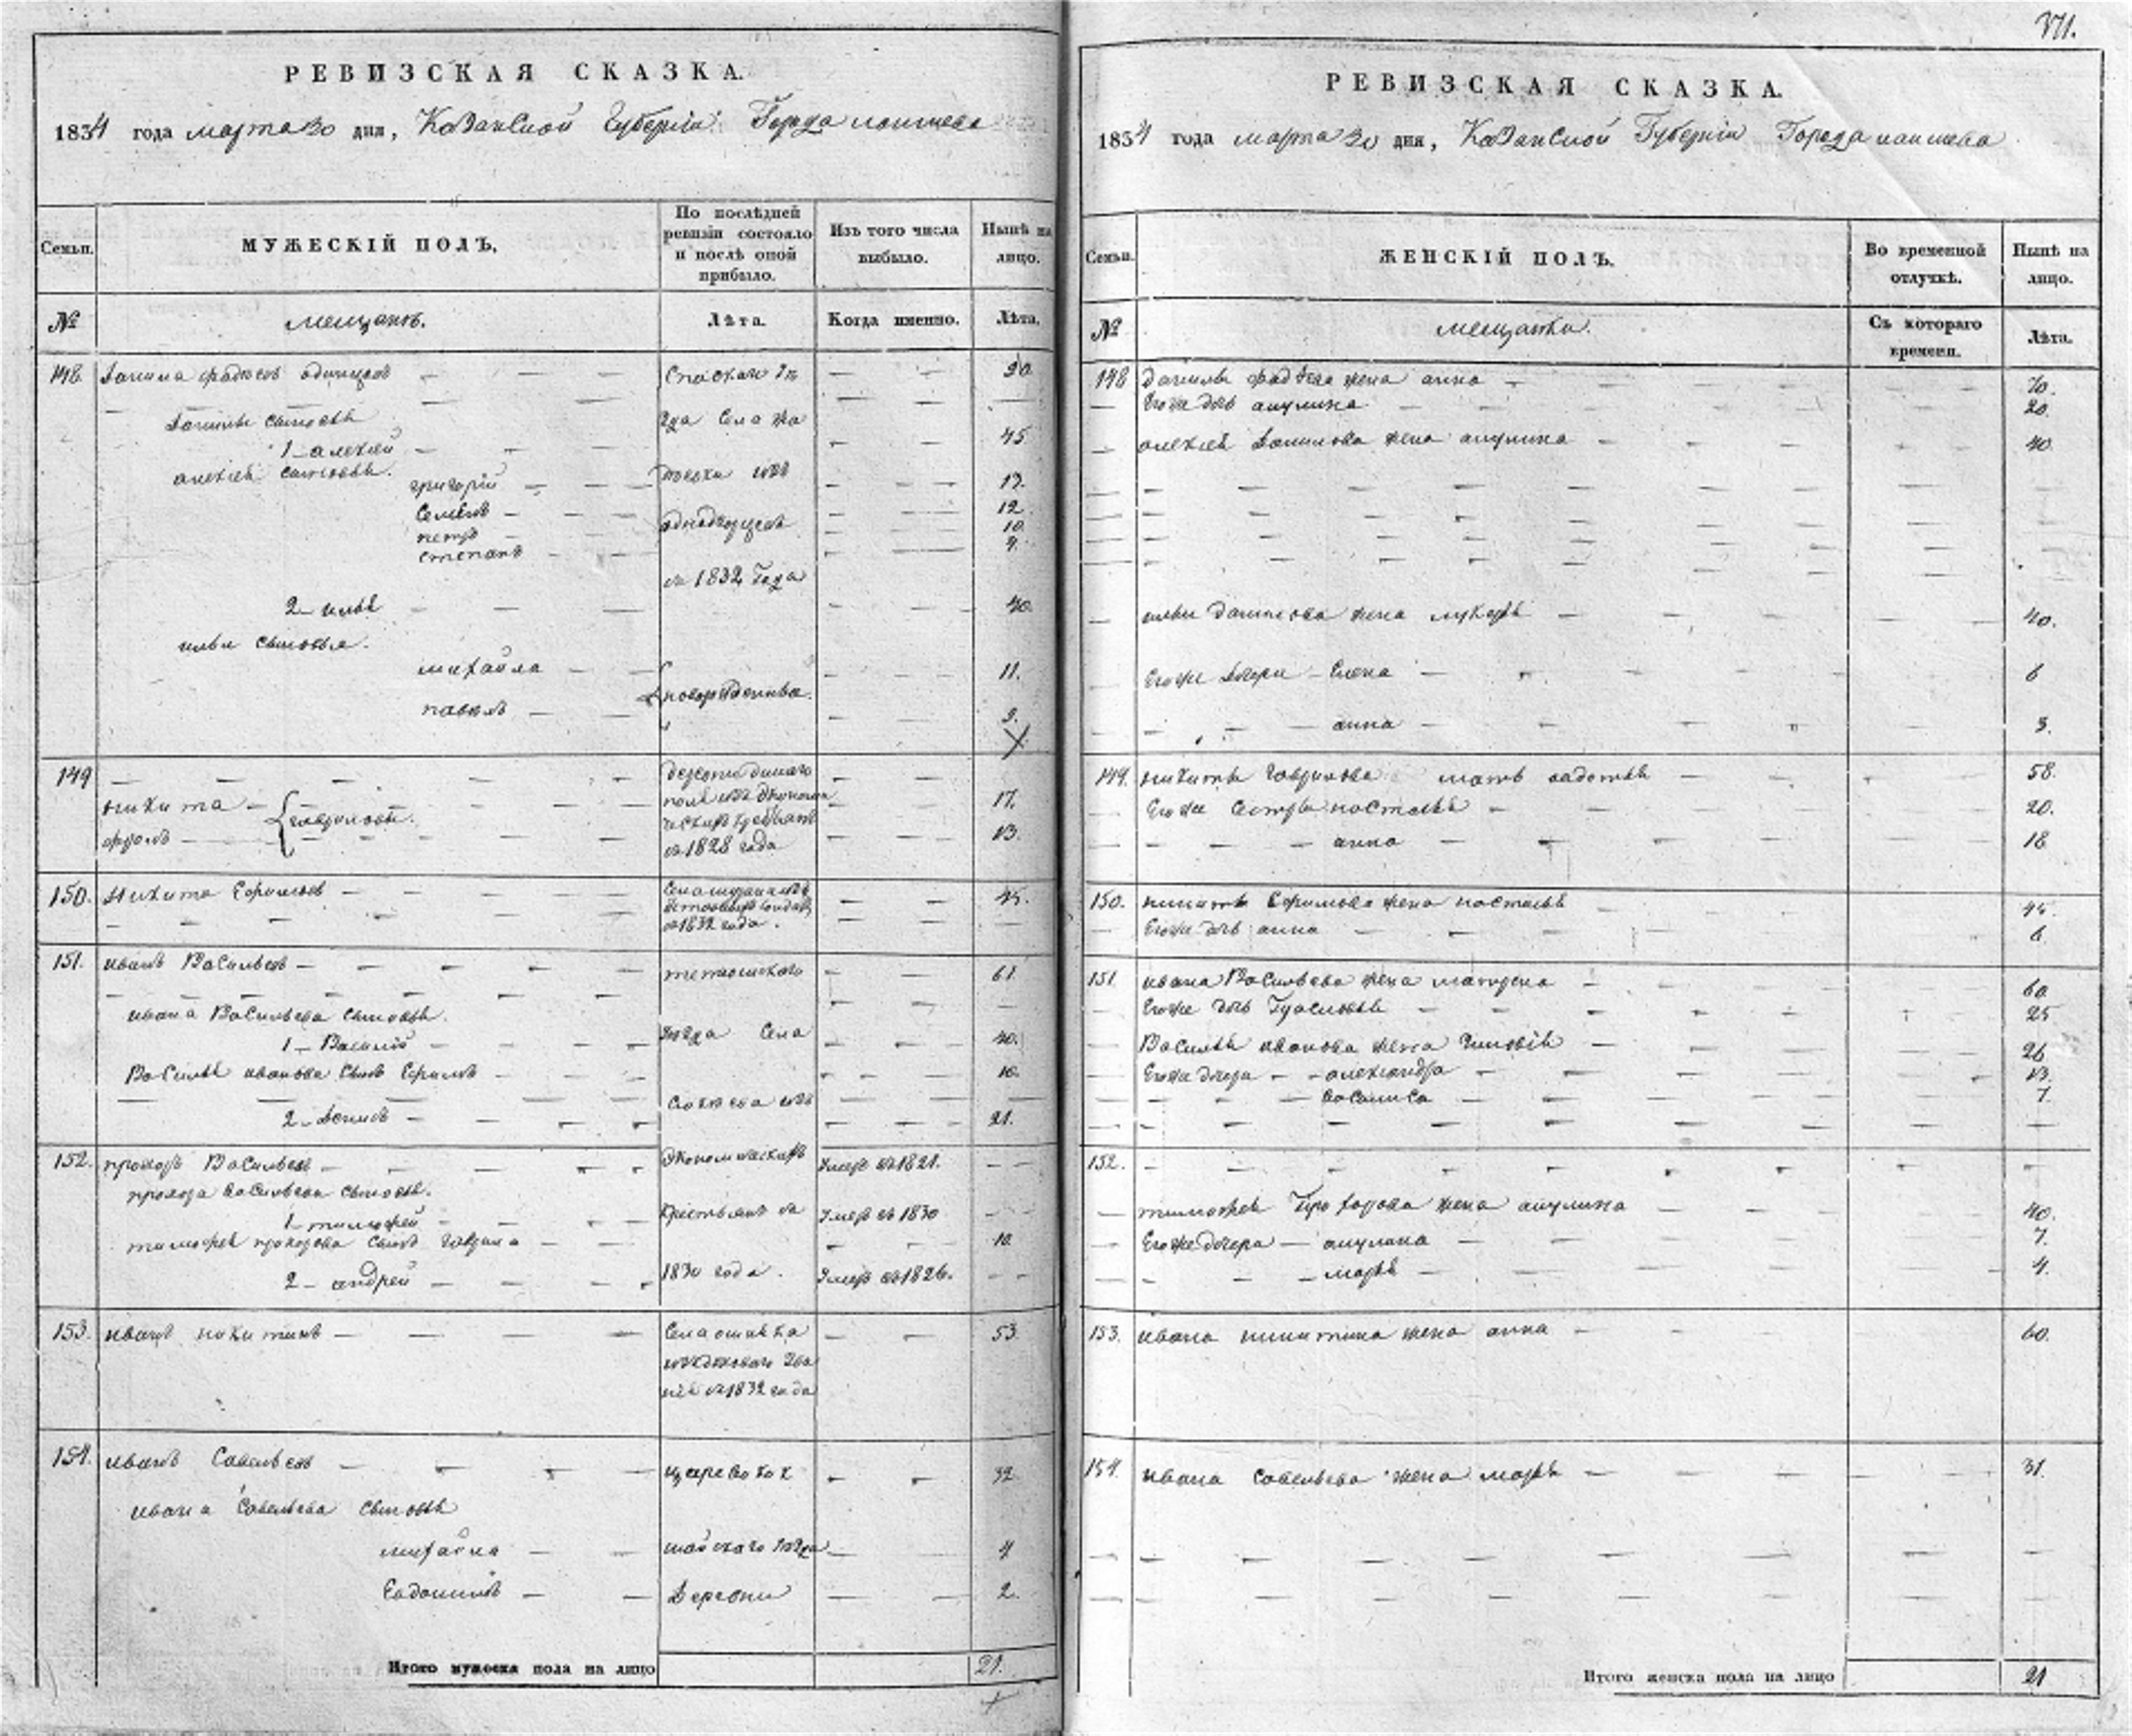 371.
РЕВИЗСКАЯ СКАЗКА.
1834 года марта 30 дня, Казанской Губернiи Города Лаишева
Семьи.
МУЖЕСКIЙ ПОЛЪ.
По послѣдней ревизiи состояло и послѣ оной прибыло.
Изъ того числа выбыло.
Нынѣ на лицо.
№
мещанъ.
Лѣта.
Когда именно.
Лѣта.
148. Данила Фадѣевъ одинцовъ
Данилы сыновья
1 – алексей 45
алексея сыновья.
григорiй 17.
Семенъ 12
петръ 10
степанъ
2 – илья 40.
ильи сыновья.
михайла 11.
павелъ 3.
Села
однодворцевъ
съ 1832 Года
новорожденные.
149
никита 17.
фролъ 13.
гавриловы.
съ 1828 года
150. Никита Ефимовъ 45.
съ 1832 года.
151. иванъ Васильевъ 61.
ивана Васильева сыновья.
1 – Василiй 40.
Василья иванова сынъ Ефимъ 10.
2 – Денисъ 21.
тетюшскаго
уезда Села
изъ
152. прохоръ Васильевъ Умеръ въ 1821.
прохора васильева сыновья.
1 – тимофей Умеръ въ 1830
тимофея прохорова сынъ гаврила 10.
2 – андрей Умеръ въ 1826.
экономическихъ
крестьянъ съ
1830 года.
153. иванъ никитинъ 53.
съ 1832 года
154. иванъ Савельевъ 32.
ивана Савельева сыновья
михайла 4
Евдокимъ 2.
царевокок
шайскаго уезда
Деревни
Итого мужеска пола на лицо 21.
РЕВИЗСКАЯ СКАЗКА.
1834 года марта 30 дня, Казанской Губернiи Города Лаишева
Семьи.
ЖЕНСКIЙ ПОЛЪ.
Во временной отлучкѣ.
Нынѣ на лицо.
№
мещанки.
Съ котораго времени.
Лѣта.
148 данилы фадеева жена анна 70.
Его же дочь акулина 20.
алексея Данилова жена акулина 40.
ильи данилова жена лукерья 40.
Его же дочери – Елена 6
анна 3.
149. никиты гаврилова мать авдотья 58.
Его же сестры настасья 20.
анна 18
150. никиты Ефимова жена настасья 45.
Его же дочь анна 6.
151. ивана Васильева жена матрена 60
Его же дочь 25
Василья иванова жена 26
Его же дочери – александра 13.
васалиса 7.
152.
тимофея Прохорова жена акулина 40.
Его же дочери – акулина 7.
марья 4.
153. ивана никитина жена анна 60.
154. ивана савельева жена марья 31.
Итого женска пола на лицо 21